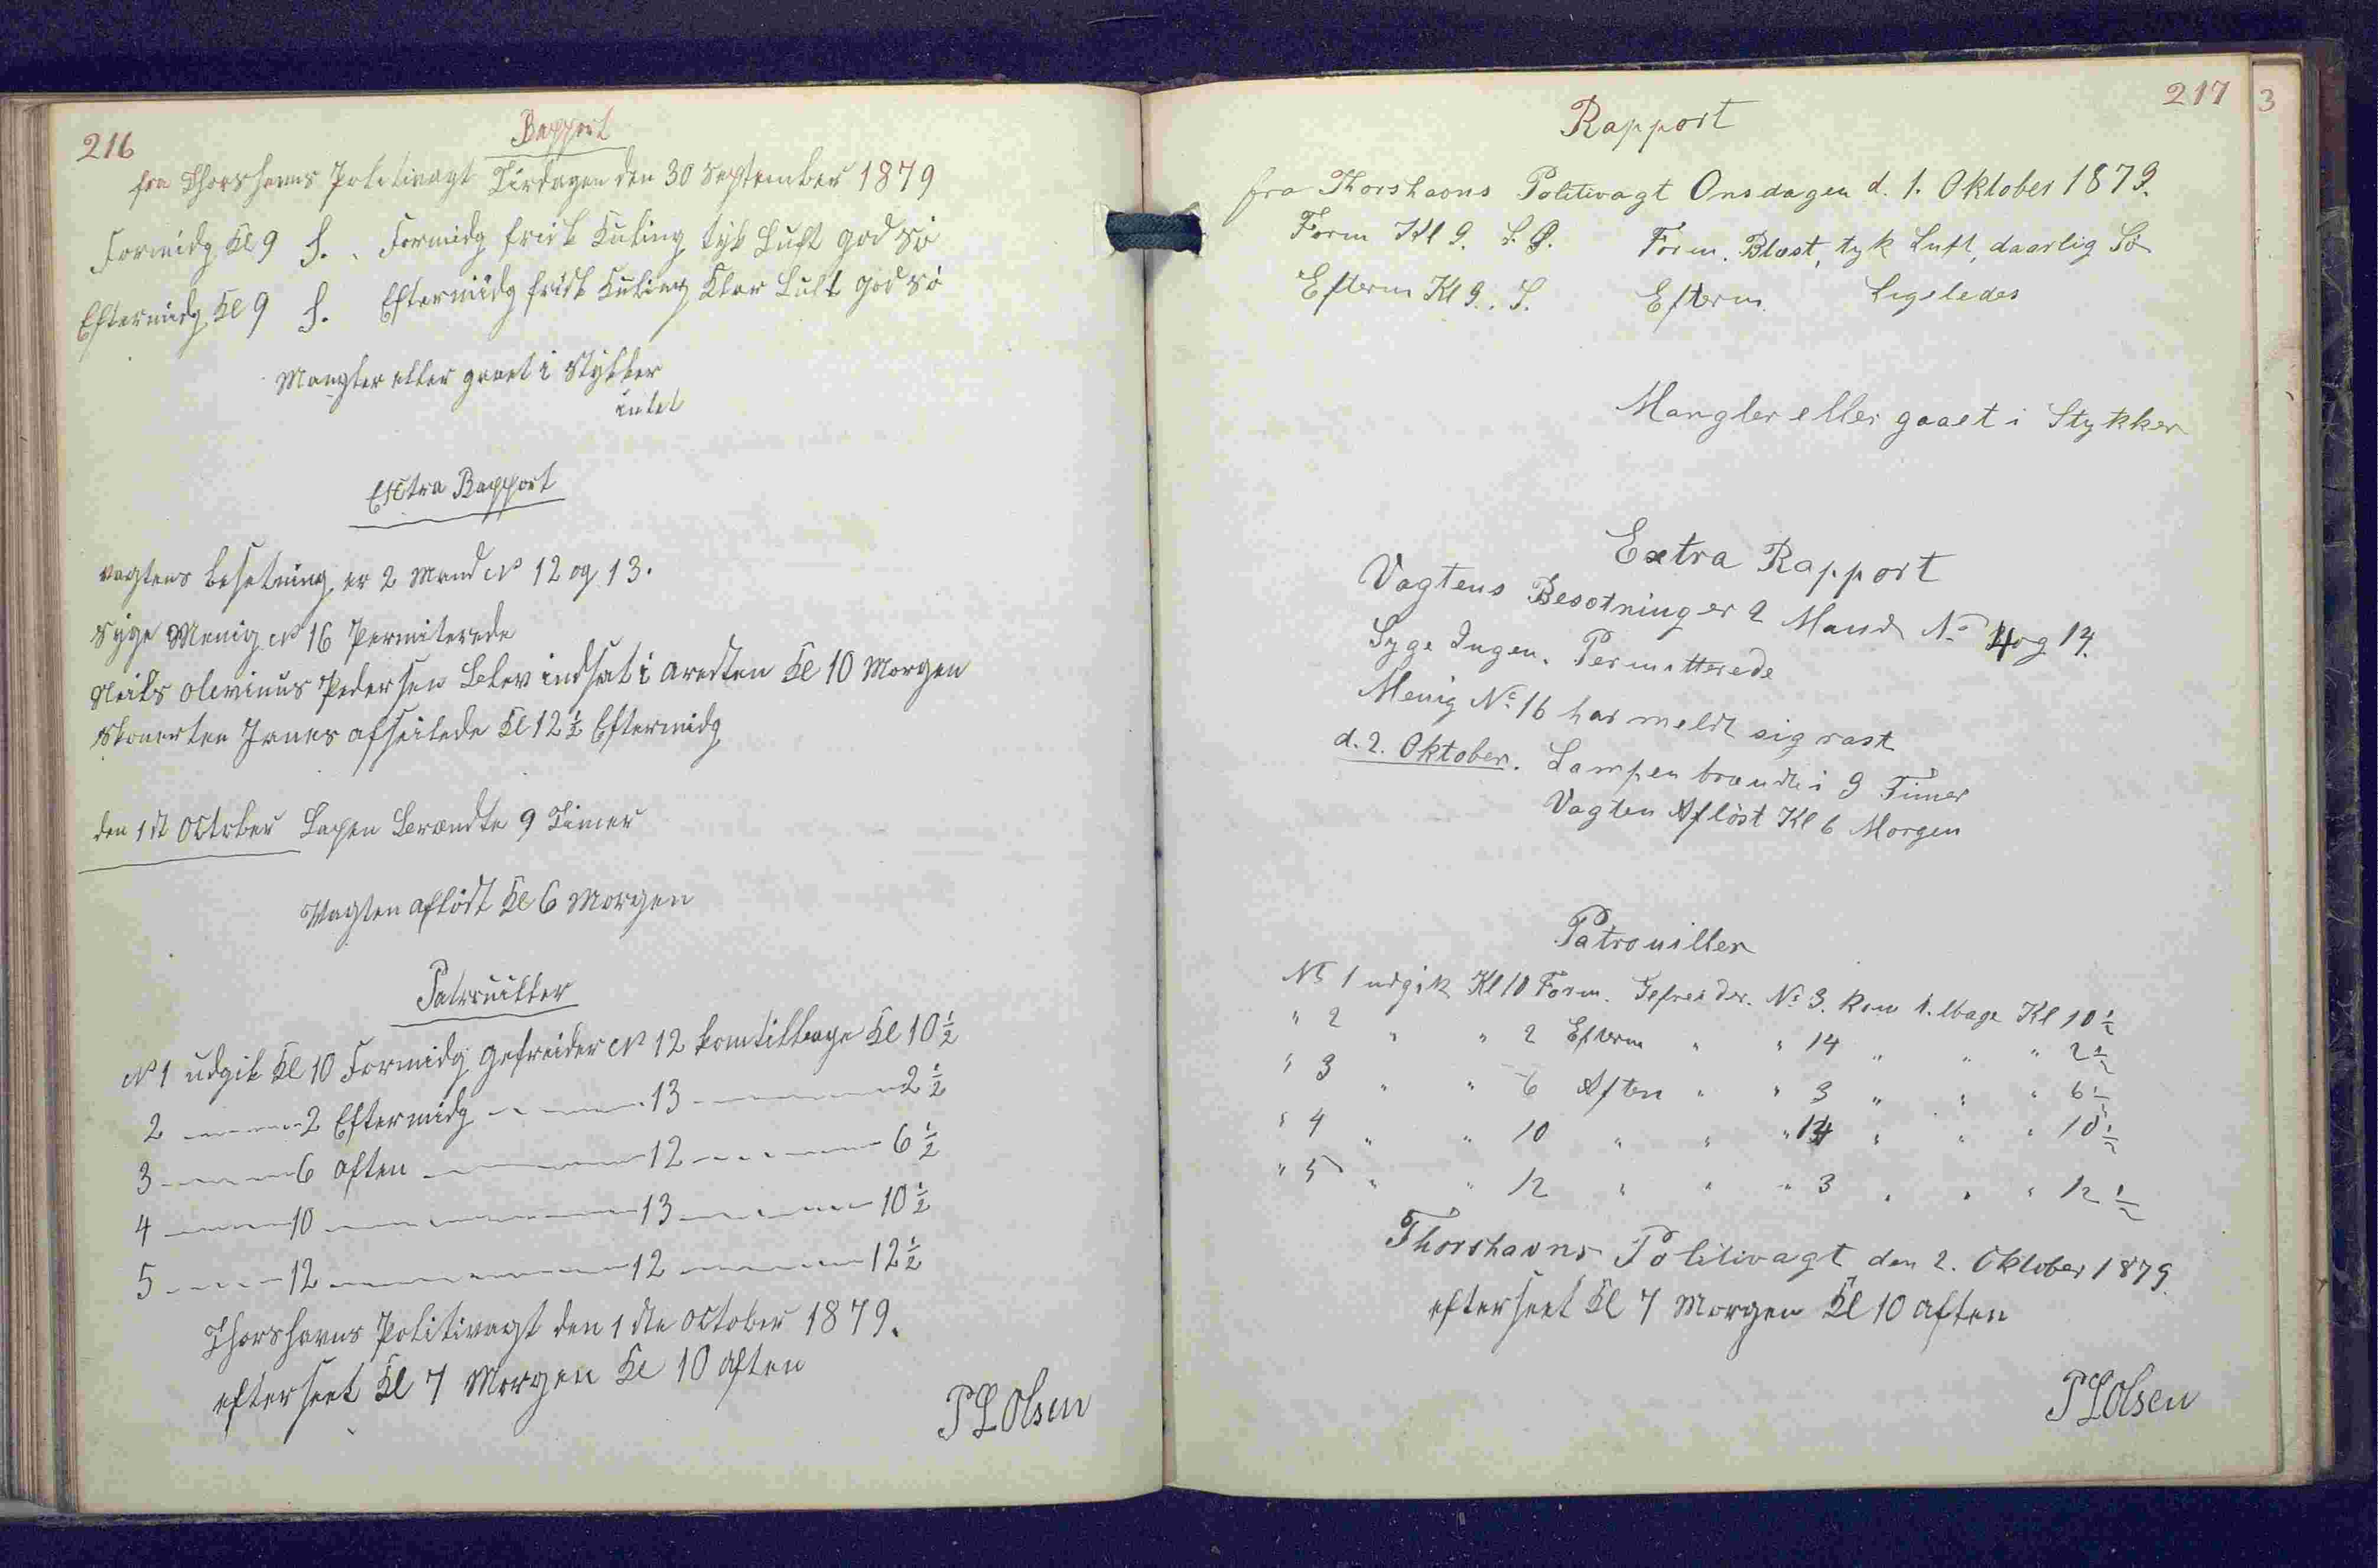 216
Rapport
fra Thorshavns Politivagt Tirdagen den 30 September 1879
Formidg Kl 9 S. . Formidg frisk Kuling tyk Luft god Sö
Eftermidg Kl 9 S. Eftermidg frisk Kuling Klar Luft god Sö
Mangler eller gaaet i Stykker
intet
Extra Rapport
Vagtens besetning er 2 Mand No 12 og 13.
Syge Menig No 16 Permiterede
Neils Olevinus Pedersen Blev indsat i Aresten Kl 10 Morgen
Skonerten Janes afseilede Kl 12 1/2 Eftermidg
den 1st October Lapen Brændte 9 Timer
Vagten aflöst Kl 6 Morgen
Patruiller
No 1 udgik Kl 10 Formidg Gefreider No 12 kom tillbage Kl 10 1/2
2 — 2 Eftermidg — 13 — 2 1/2
3 — 6 Aften — 12 — 6 1/2
4 — 10 — 13 — 10 1/2
5 — 12 — 12 — 12 1/2
Thorshavns Politivagt den 1ste October 1879.
efterseet Kl 7 Morgen Kl 10 Aften
P L Olsen
217
3
Rapport
fra Thorshavns Politivagt Onsdagen d. 1. Oktober 1879.
Form Kl 9. Form. Blæst, tyk Luft, daarlig Sö
Efterm Kl 9.. S. Efterm. Ligeledes
Mangler eller gaaet i Stykker
Extra Rapport
Vagtens Besætning er 2 Mand No og 14.
Syge Ingen. Permitterede
Menig No 16 har meldt sig rask
d. 2. Oktober. Lampen brændte i 9 Timer
Vagten Aflöst Kl 6 Morgen
Patrouiller
No 1 udgik Kl 10 Form. Gefreider. No 3. kom t. lbage Kl 10 1/2
" 2 " " 2 Efterm " " 14 " " " 2 1/2
" 3 " " 6 Aften " " 3 " " " 6 1/2
" 4 " " 10 " " " 14 " " " 10 1/2
" 5 " " 12 " " " 3 " " " 12 1/2
Thorshavns Politivagt den 2. Oktober 1879.
efterseet Kl 7 Morgen Kl 10 Aften
P L Olsen